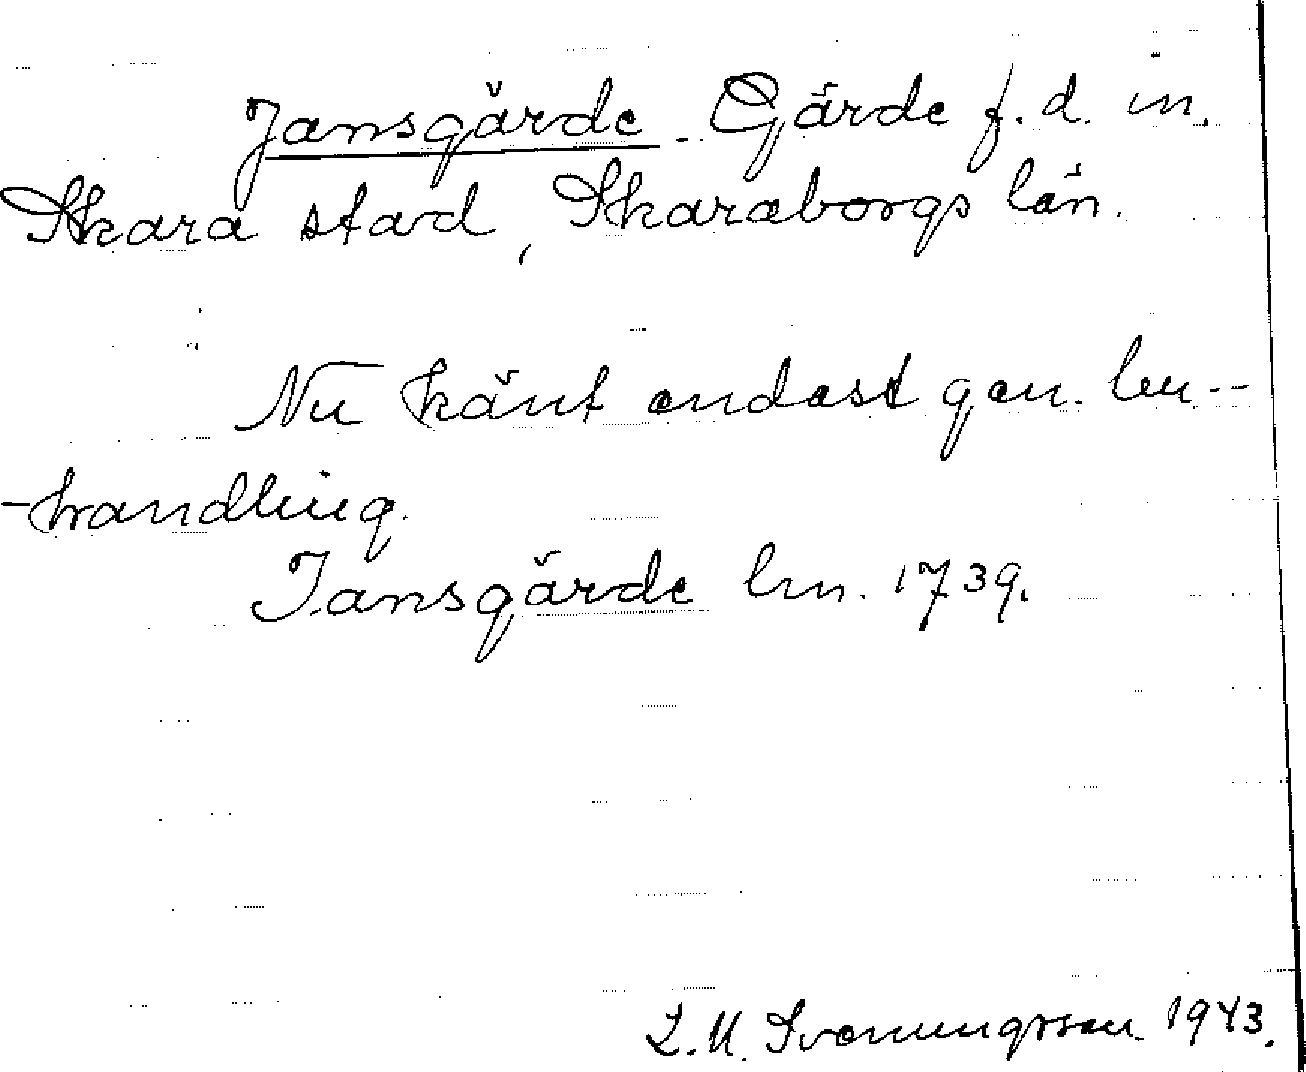 Jansgärde. Gärde f.d. in.
Skara stad, Skaraborgs län.
Nu känt endast gen. lm-
-handling.
Jansgärde lm. 1739.
L.M. Svenungsson. 1943.